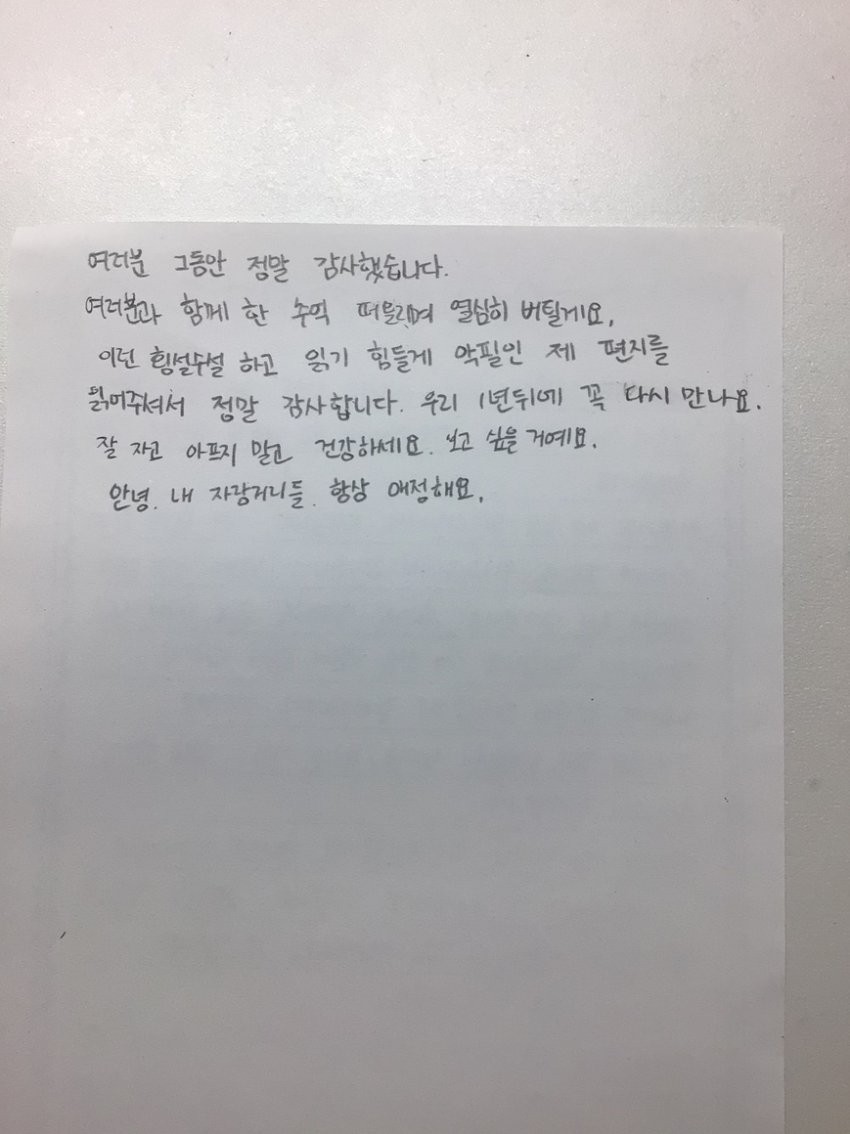 여러분 그동안 정말 감사했습니다.
여러분과 함께 한 추억 떠올리며 열심히 버틸게요.
이런 횡설수설 하고 읽기 힘들게 악필인 제 편지를
읽어주셔서 정말 감사합니다. 우리 1년뒤에 꼭 다시 만나요.
잘 자고 아프지 말고 건강하세요. 보고 싶을 거예요.
안녕. 내 자랑거리들. 항상 애정해요.